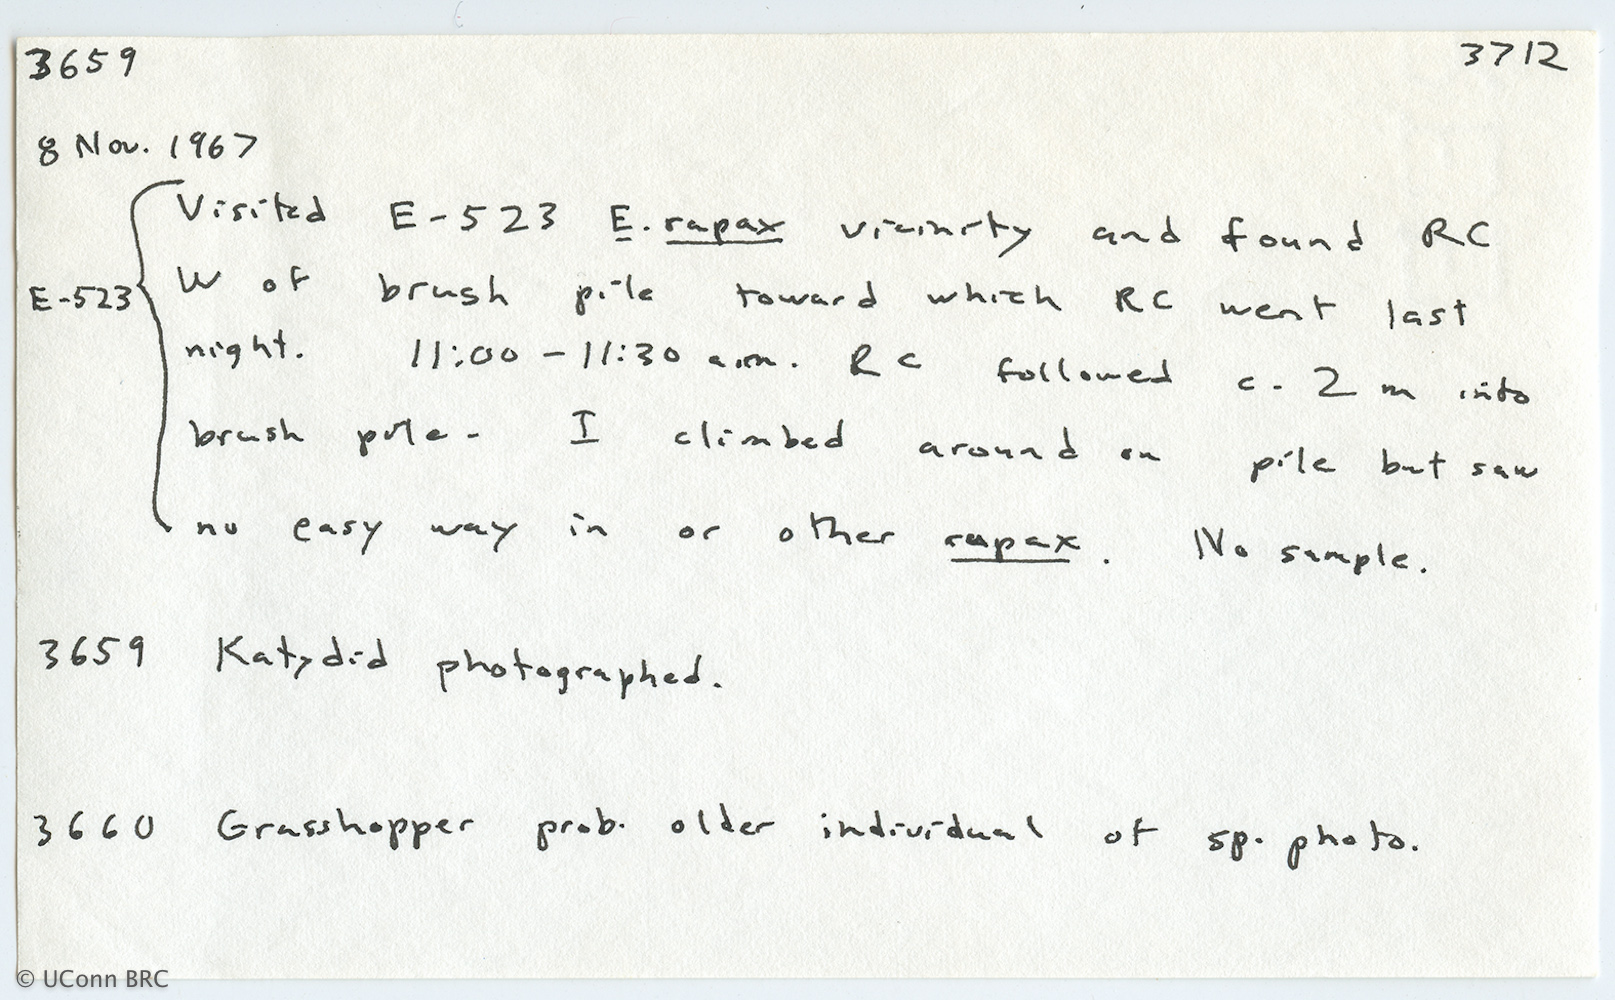 3659 3712
8 Nov. 1967
Visited E-523 E. rapax vicinity and found RC
E-523 W of brush pile toward which RC went last
night. 11:00 - 11:30 a.m. RC followed c. 2 m into
brush pile. I climbed around on pile but saw
no easy way in or other rapax. No sample.
3659 Katydid photographed.
3660 Grasshopper prob. older individual of sp. photo.
© UConn BRC